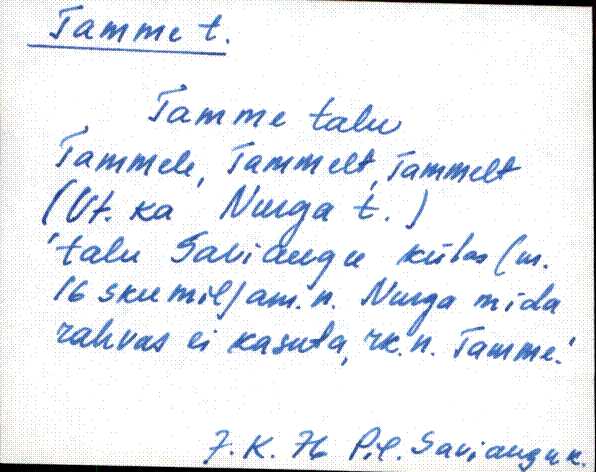 Tamme t.
Tamme talu
Tammele, Tammelt, Tammelt
(Vt. ka Nurga t.)
'talu Saviaugu külas (m.
am. n. Nurga mida
rahvas ei kasuta, rk. n. Tamme.'
J. K. 76 Pil. Saviaugu k.